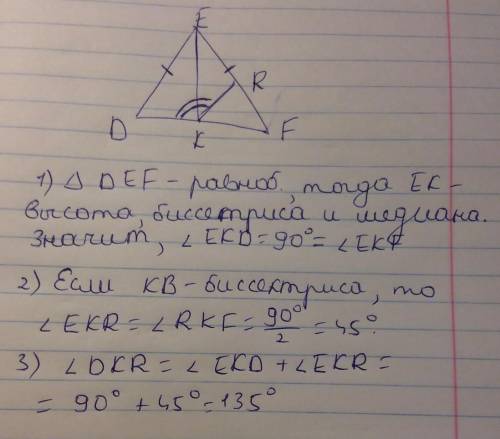 E
R
D
K
F
1) Δ DEF - равноб., тогда EK -
высота, биссектриса и медиана.
Значит, ∠EKD = 90° = ∠EKF
2) Если KB - биссектриса, то
∠EKR = ∠RKF = 90°/2 = 45°.
3) ∠DKR = ∠EKD + ∠EKR =
= 90° + 45° = 135°